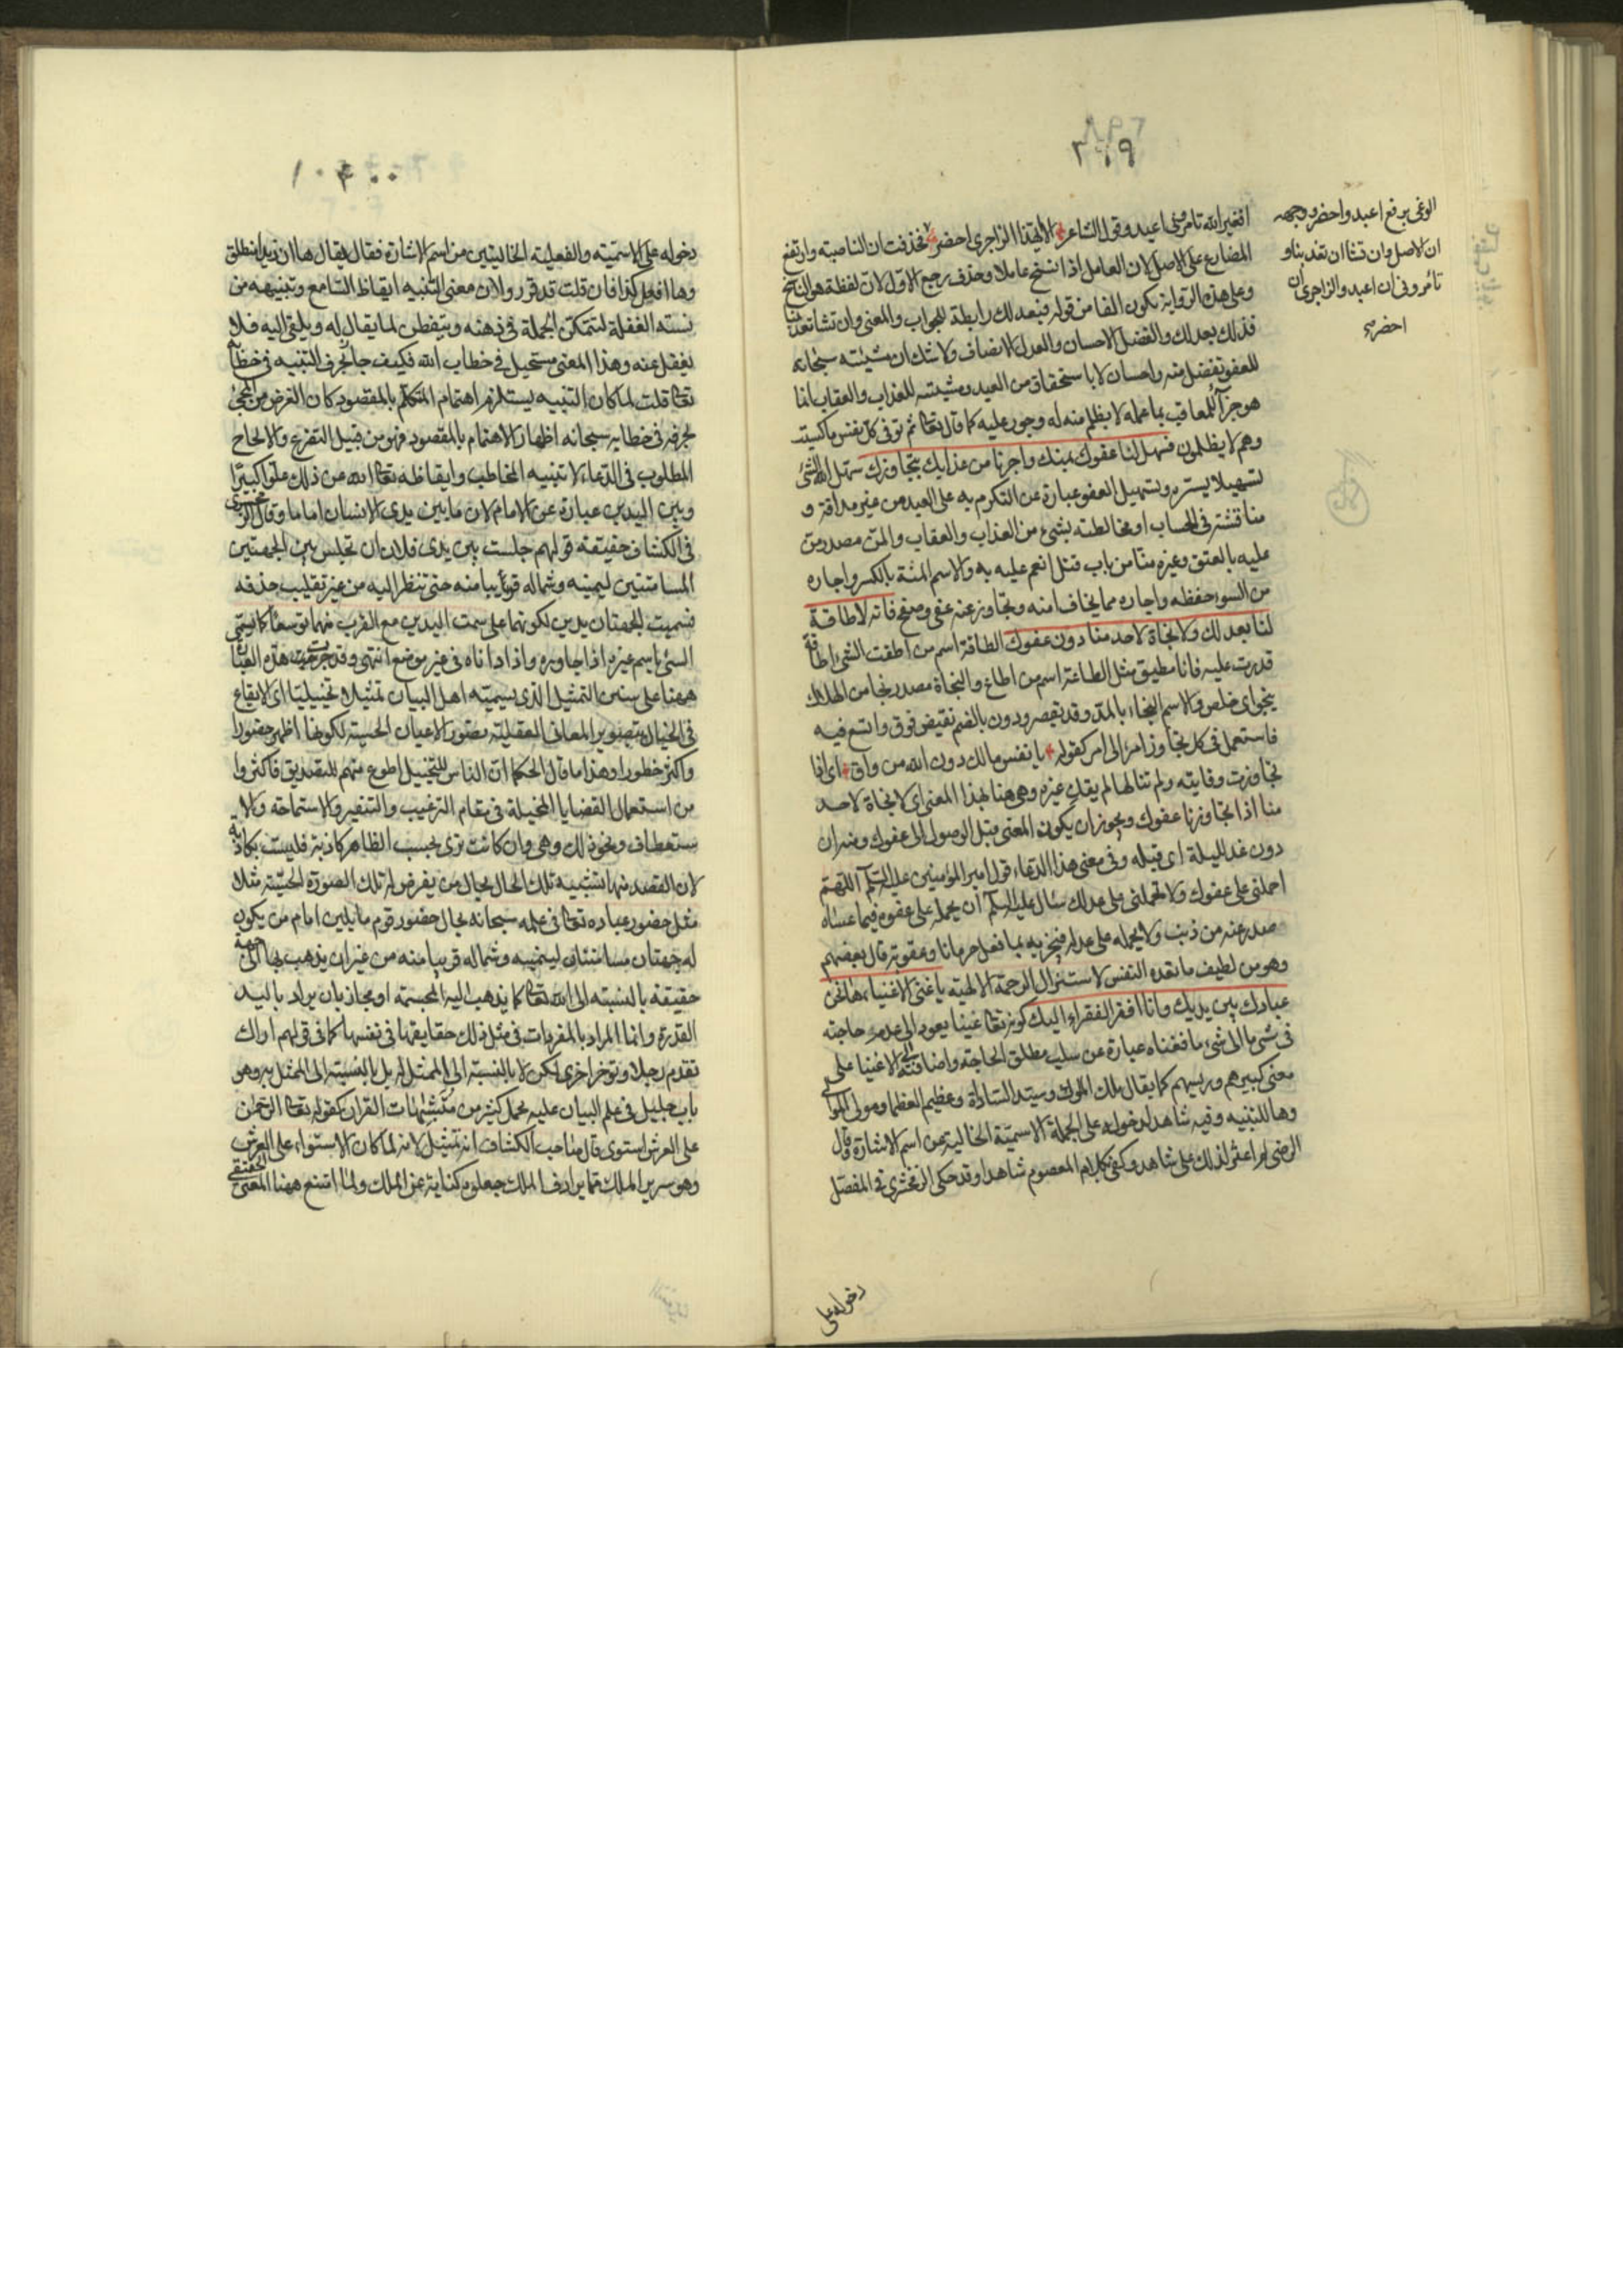 ٣٦٩
افغير الله تامروني اعبد وقول الشاعر الا ايهذا الزاجري احضر فحذفت ان الناصبة وارتفع
المضارع على الاصل لان العامل اذا نسخ عاملا وحذف رجع الاول لان لفظه هو الناسخ
وعلى هذه الرواية يكون الفا من قوله فبعدلك رابطة للجواب والمعنى وان تشا تعذبنا
فذلك بعدلك والفضل الاحسان والعدل الانصاف ولا شك ان مشيته سبحانه
للعفو تفضل منه واحسان لا باستحقاق من العبد ومشيته للعذاب والعقاب انما
هو جزآء للمعاقب بما عمله لا بظلم منه له وجور عليه كما قال تعالى ثم توفى كل نفس ما كسبت
وهم لا يظلمون فسهل لنا عفوك بمنك واجرنا من عذابك بتجاوزك سهل الله الشئ
تسهيلا يسره وتسهيل العفو عبارة عن التكرم به على العبد من غير مداقة و
مناقشة في الحساب او مخالطته بشئ من العذاب والعقاب والمن مصدر من
عليه بالعتق وغيره منا من باب قتل انعم عليه به والاسم المنة بالكسر واجاره
من السوء حفظه واجاره مما يخاف امنه وتجاوز عنه عفى وصفح فانه لا طاقة
لنا بعدلك ولا نجاة لاحد منا دون عفوك الطاقة اسم من اطقت الشئ اطاقة
قدرت عليه فانا مطيق مثل الطاعة اسم من اطاع والنجاة مصدر نجا من الهلاك
ينجو اى خلص والاسم النجاء بالمد وقد يقصر ودون بالضم نقيض فوق واتسع فيه
فاستعمل في كل تجاوز امر الى امر كقوله يا نفس مالك دون الله من واق اى اذا
تجاوزت وقايته ولم تنالها لم يقك غيره وهى هنا بهذا المعنى اى لا نجاة لاحد
منا اذا تجاوزنا عفوك ويجوز ان يكون المعنى قبل الوصول الى عفوك ومنه ان
دون غد لليلة اى قبله وفى معنى هذا الدعاء قول امير المؤمنين عليه السلم اللهم
احملني على عفوك ولا تحملني على عدلك سئال عليه السلم ان يحمله على عفوه فيما عساه
صدر عنه من ذنب ولا يحمله على عدله فيجزيه بما فعل حرمانا وعقوبة قال بعضهم
وهو من لطيف ما تعده النفس لاستنزال الرحمة الالهية يا غنى الاغنياء ها نحن
عبادك بين يديك وانا افقر الفقراء اليك كونه تعالى غنيا يعود الى عدم حاجته
فى شئ ما الى شئ ما فغناه عبارة عن سلب مطلق الحاجة واضافته الى الاغنيا على
معنى كبيرهم ورييسهم كما يقال ملك الملوك وسيد السادات وعظيم العظما ومولى الموالى
وها للتنبيه وفيه شاهد لدخوله على الجملة الاسمية الخالية عن اسم الاشارة وقال
الرضى لم اعثر لذلك على شاهد وكفى بكلام المعصوم شاهدا وقد حكى الزمخشرى فى المفصل
دخوله على
الوغى برفع اعبد واحضر ووجهه
ان الاصل وان تشا ان تعذبنا و
تامروني ان اعبد والزاجري ان
احضر
دخوله على الاسمية والفعلية الخاليتين من اسم الاشارة فقال يقال ها ان زيدا منطلق
وها افعل كذا فان قلت قد قرروا ان معنى التنبيه ايقاظ السامع وتنبيهه من
سنة الغفلة لتتمكن الجملة فى ذهنه ويتفطن لما يقال له ويلقى اليه فلا
يغفل عنه وهذا المعنى مستحيل فى خطاب الله فكيف جا بحرف التنبيه فى خطابه
تعالى قلت لما كان التنبيه يستلزم اهتمام المتكلم بالمقصود كان الغرض من المجئ
بحرفه فى خطابه سبحانه اظهار الاهتمام بالمقصود فهو من قبيل التضرع والالحاح
المطلوب فى الدعاء لا تنبيه المخاطب وايقاظه تعالى الله عن ذلك علوا كبيرا
وبين اليدين عبارة عن الامام لان ما بين يدى الانسان امامه وقال الزمخشرى
فى الكشاف حقيقة قولهم جلست بين يدى فلان ان تجلس بين الجهتين
المسامتتين ليمينه وشماله قريبا منه حتى تنظر اليه من غير تقليب حدقه
فسميت الجهتان يدين لكونهما على سمت اليدين مع القرب منهما توسعا كما يسمى
الشئ باسم غيره اذا جاوره واداناه فى غير موضع انتهى وقد جرت هذه العبارة
ههنا على سنن التمثيل الذى يسميه اهل البيان تمثيلا تخييليا اى الايقاع
فى الخيال بتصوير المعانى العقلية بصور الاعيان الحسية لكونها اظهر حضورا
واكثر خطورا وهذا ما قال الحكما ان الناس للتخييل اطوع منهم للتصديق فاكثروا
من استعمال القضايا المخيلة فى مقام الترغيب والتنفير والاستماحة والا
ستعطاف ونحو ذلك وهى وان كانت ترى بحسب الظاهر كاذبة فليست بكاذبة
لان القصد منها تشبيه تلك الحال بحال من يفرض له تلك الصورة الحسية مثلا
مثل حضور عباده تعالى فى علمه سبحانه بحال حضور قوم ماثلين امام من يكون
له جهتان مسامتتان ليمينه وشماله قريبا منه من غير ان يذهب بها الى جهة
حقيقة بالنسبة الى الله تعالى كما يذهب اليه المجسمة او مجاز بان يراد باليد
القدرة وانما المراد بالمفردات فى مثل ذلك حقايقها فى نفسها كما فى قولهم اراك
تقدم رجلا وتوخر اخرى لكن لا بالنسبة الى الممثل له بل بالنسبة الى الممثل به وهو
باب جليل فى علم البيان عليه محمل كثير من متشابهات القران كقوله تعالى الرحمن
على العرش استوى قال صاحب الكشاف انه تمثيل لانه لما كان الاستواء على العرش
وهو سرير الملك مما يرادف الملك جعلوه كناية عن الملك ولما امتنع ههنا المعنى الحقيقى